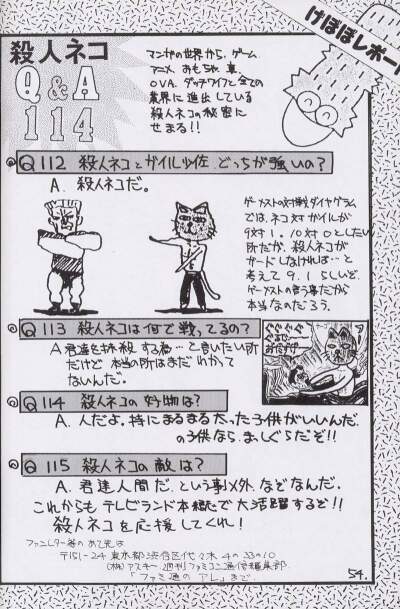 けぼぼレポー
殺人ネコ
Q&A
114
マンガの世界から、ゲーム
アニメ、おもちゃ、真、
OVA、ダッチワイフと全ての
業界に進出している
殺人ネコの秘密に
せまる!!
Q112 殺人ネコとガイル少佐、どっちが強いの?
A. 殺人ネコだ。
ゲーメストの対戦ダイヤグラム
では、ネコ対ガイルが
9対1。10対0としたい
所だが、殺人ネコが
ガードしなければ…と
考えて9.1らしいぞ。
ゲーメストの言う事だから
本当なのだろう。
Q113 殺人ネコは何で戦ってるの?
A 君達を抹殺する為…と言いたい所
だけど本当の所はまだわかって
ないんだ。
ぐぐぐぐ
Q114 殺人ネコの好物は?
A. 人だよ。特にまるまる太った子供がいいんだ。
の子供なら、ましぐらだぞ!!
Q115 殺人ネコの敵は?
A. 君達人間だ、という事以外、なぞなんだ。
これからもテレビランド本誌で大活躍するぞ!!
殺人ネコを応援してくれ!
ファンレター等のあて先は
〒151-24 東京都渋谷区代々木4の33の10
(株)アスキー 週刊ファミコン通信編集部
「ファミ通のアレ」まで
54.